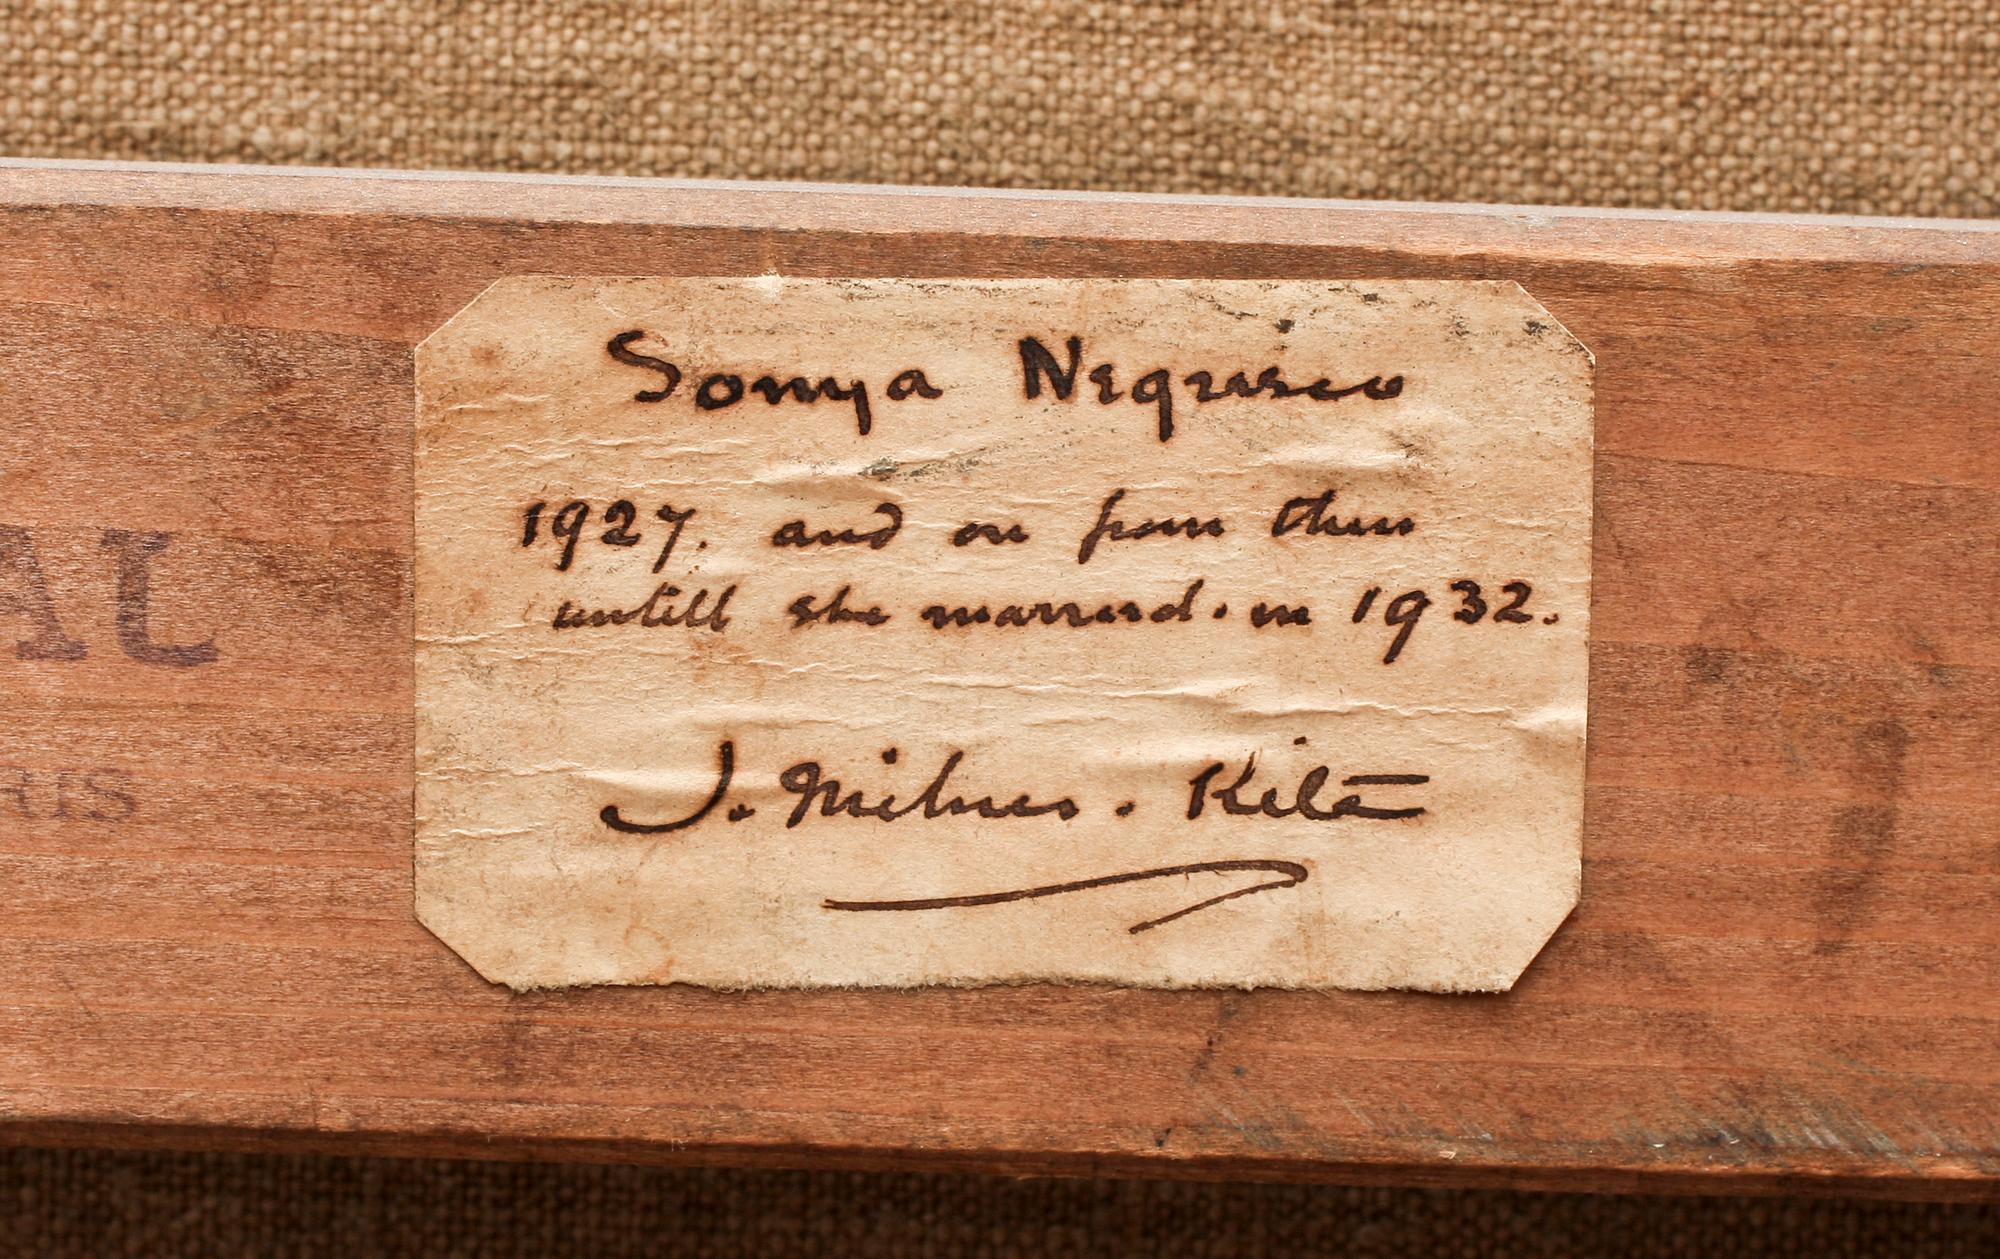 Sonya Negresco
1927. and on from then
untill she married. in 1932.
J. Milner. Kite
AL
RIS